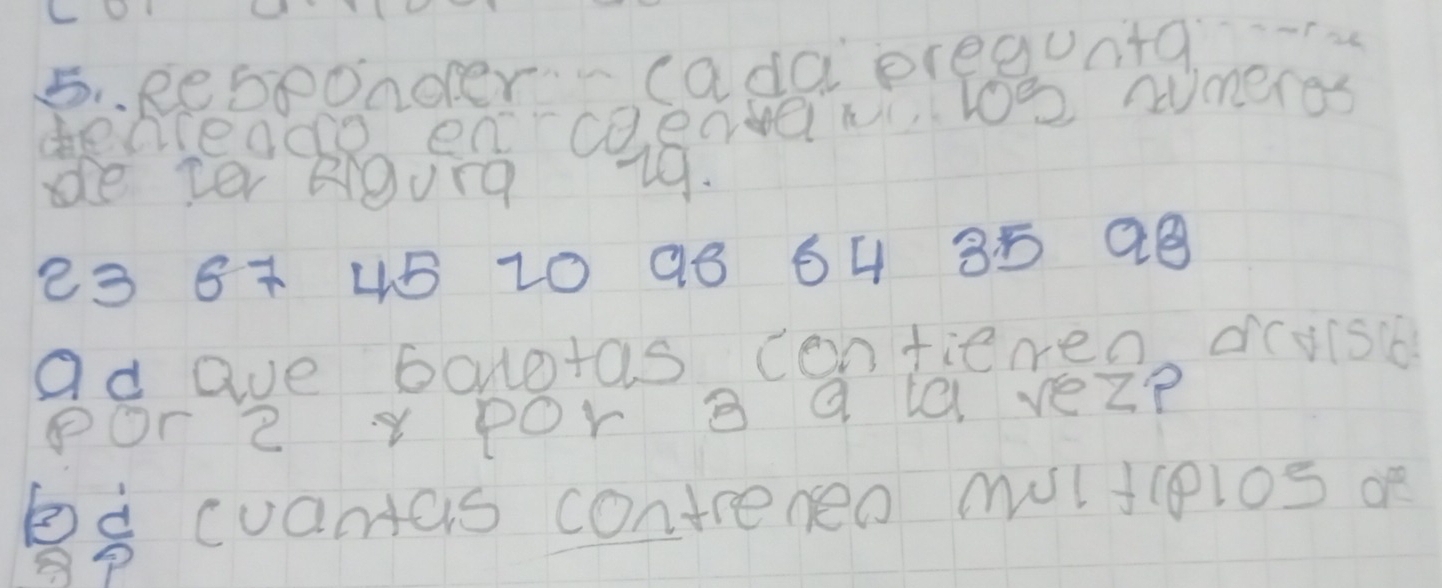 5. Responder cada pregunta
teniendo en cuenta los numeros
de la figura 19.
23 67 45 20 96 64 35 98
a ¿ que balotas contienen divisib
por 2 y por 3 a la vez?
b ¿ cuantas contienen multiplos de
3 ?